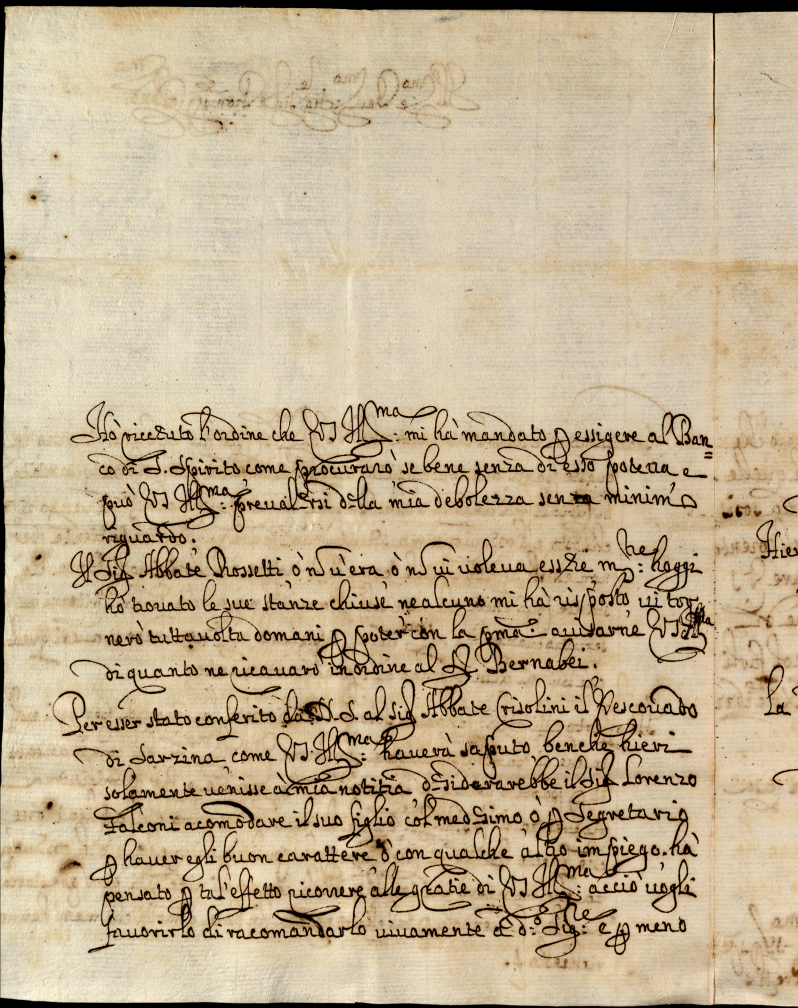 Hò riceuto l'ordine che VS Ill:ma mi hà mandato p essigere al Ban=
co di S. Spirito come procurarò se bene senza di esso poteua e
può VS Ill:ma preualersi della mia debolezza senza minimo
riguardo.
Il Sig Abbate Rosselli ò nō u'era ò nō ui uoleua essere m:tre hoggi
hò trouato le sue stanze chiuse ne alcuno mi hà risposto ui tor=
nerò tuttauolta domani p poter con la pma: auisarne VS Ill:ma
di quanto ne ricauarò in ordine al S. Bernabei.
Per esser stato conferito da N. S. al Sig Abbate Crisolini il Vescouado
di Sarzina come VS Ill:ma hauerà saputo benche hieri
solamente uenisse à mia notitia desiderarebbe il Sig Lorenzo
Falconi acomodare il suo figlio col medesimo ò p Segretario
p hauer egli buon carattere ò con qualche altro impiego. hà
pensato p tal'effetto ricorrere alle gratie di VS Ill:ma acciò uogli
fauorirlo di racomandarlo uiuamente à d:o Sig:re e p meno
Hier
La